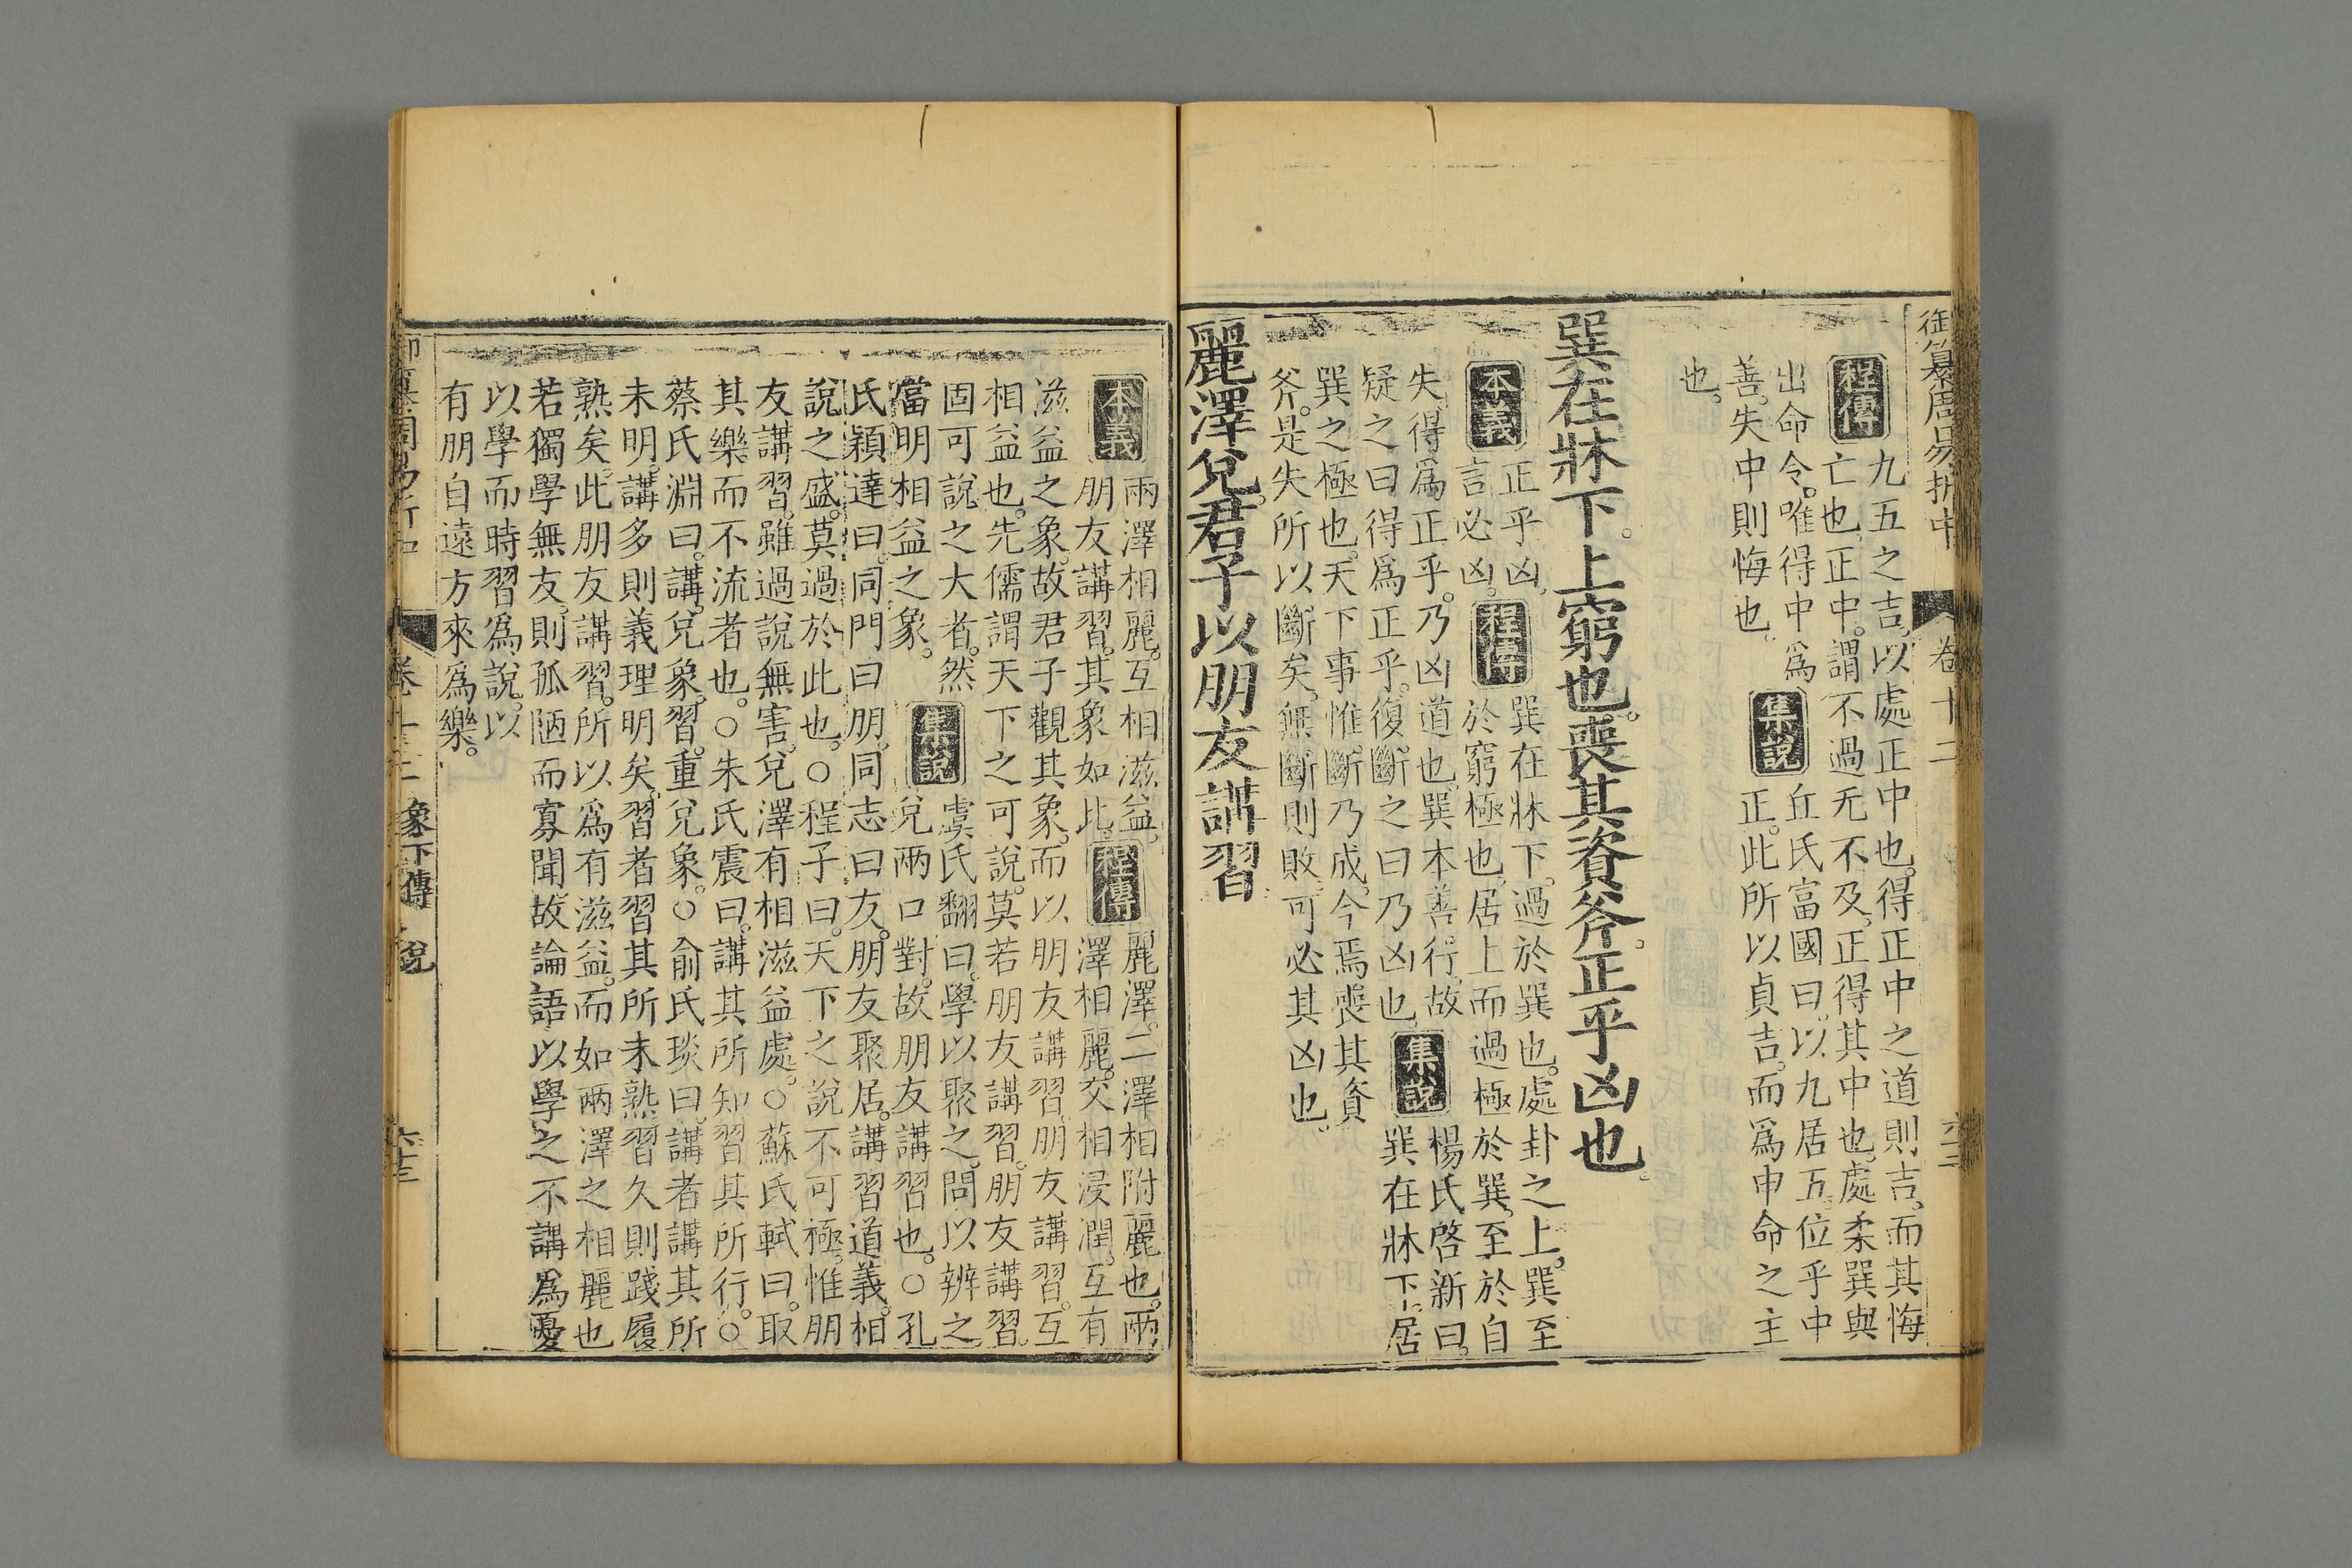 御纂周易折中　卷十二
程傳　九五之吉。以處正中也。得正中之道則吉。而其悔
亡也。正中。謂不過无不及。正得其中也。處柔巽與
出命令。唯得中爲
善。失中則悔也。
集說　丘氏富國曰。以九居五。位乎中
正。此所以貞吉。而爲申命之主
也。
巽在牀下。上窮也。喪其資斧。正乎凶也。
本義　正乎凶。
言必凶。
程傳　巽在牀下。過於巽也。處卦之上。巽至
於窮極也。居上而過極於巽。至於自
失。得爲正乎。乃凶道也。巽本善行。故
疑之曰得爲正乎。復斷之曰乃凶也。
集說　楊氏啓新曰。
巽在牀下。居
巽之極也。天下事惟斷乃成。今焉喪其資
斧。是失所以斷矣。無斷則敗。可必其凶也。
麗澤兌。君子以朋友講習
本義　兩澤相麗。互相滋益。
朋友講習。其象如此。
程傳　麗澤。二澤相附麗也。兩
澤相麗。交相浸潤。互有
滋益之象。故君子觀其象。而以朋友講習。朋友講習。互
相益也。先儒謂天下之可說。莫若朋友講習。朋友講習。
固可說之大者。然
當明相益之象。
集說　虞氏翻曰。學以聚之。問以辨之。
兌兩口對。故朋友講習也。○孔
氏穎達曰。同門曰朋。同志曰友。朋友聚居。講習道義。相
說之盛。莫過於此也。○程子曰。天下之說不可極。惟朋
友講習。雖過說無害。兌澤有相滋益處。○蘇氏軾曰。取
其樂而不流者也。○朱氏震曰。講其所知。習其所行。○
蔡氏淵曰。講。兌象。習。重兌象。○俞氏琰曰。講者講其所
未明。講多則義理明矣。習者習其所未熟。習久則踐履
熟矣。此朋友講習。所以爲有滋益。而如兩澤之相麗也
若獨學無友。則孤陋而寡聞。故論語以學之不講爲憂
以學而時習爲說。以
有朋自遠方來爲樂。
卷十二　象下傳　兌